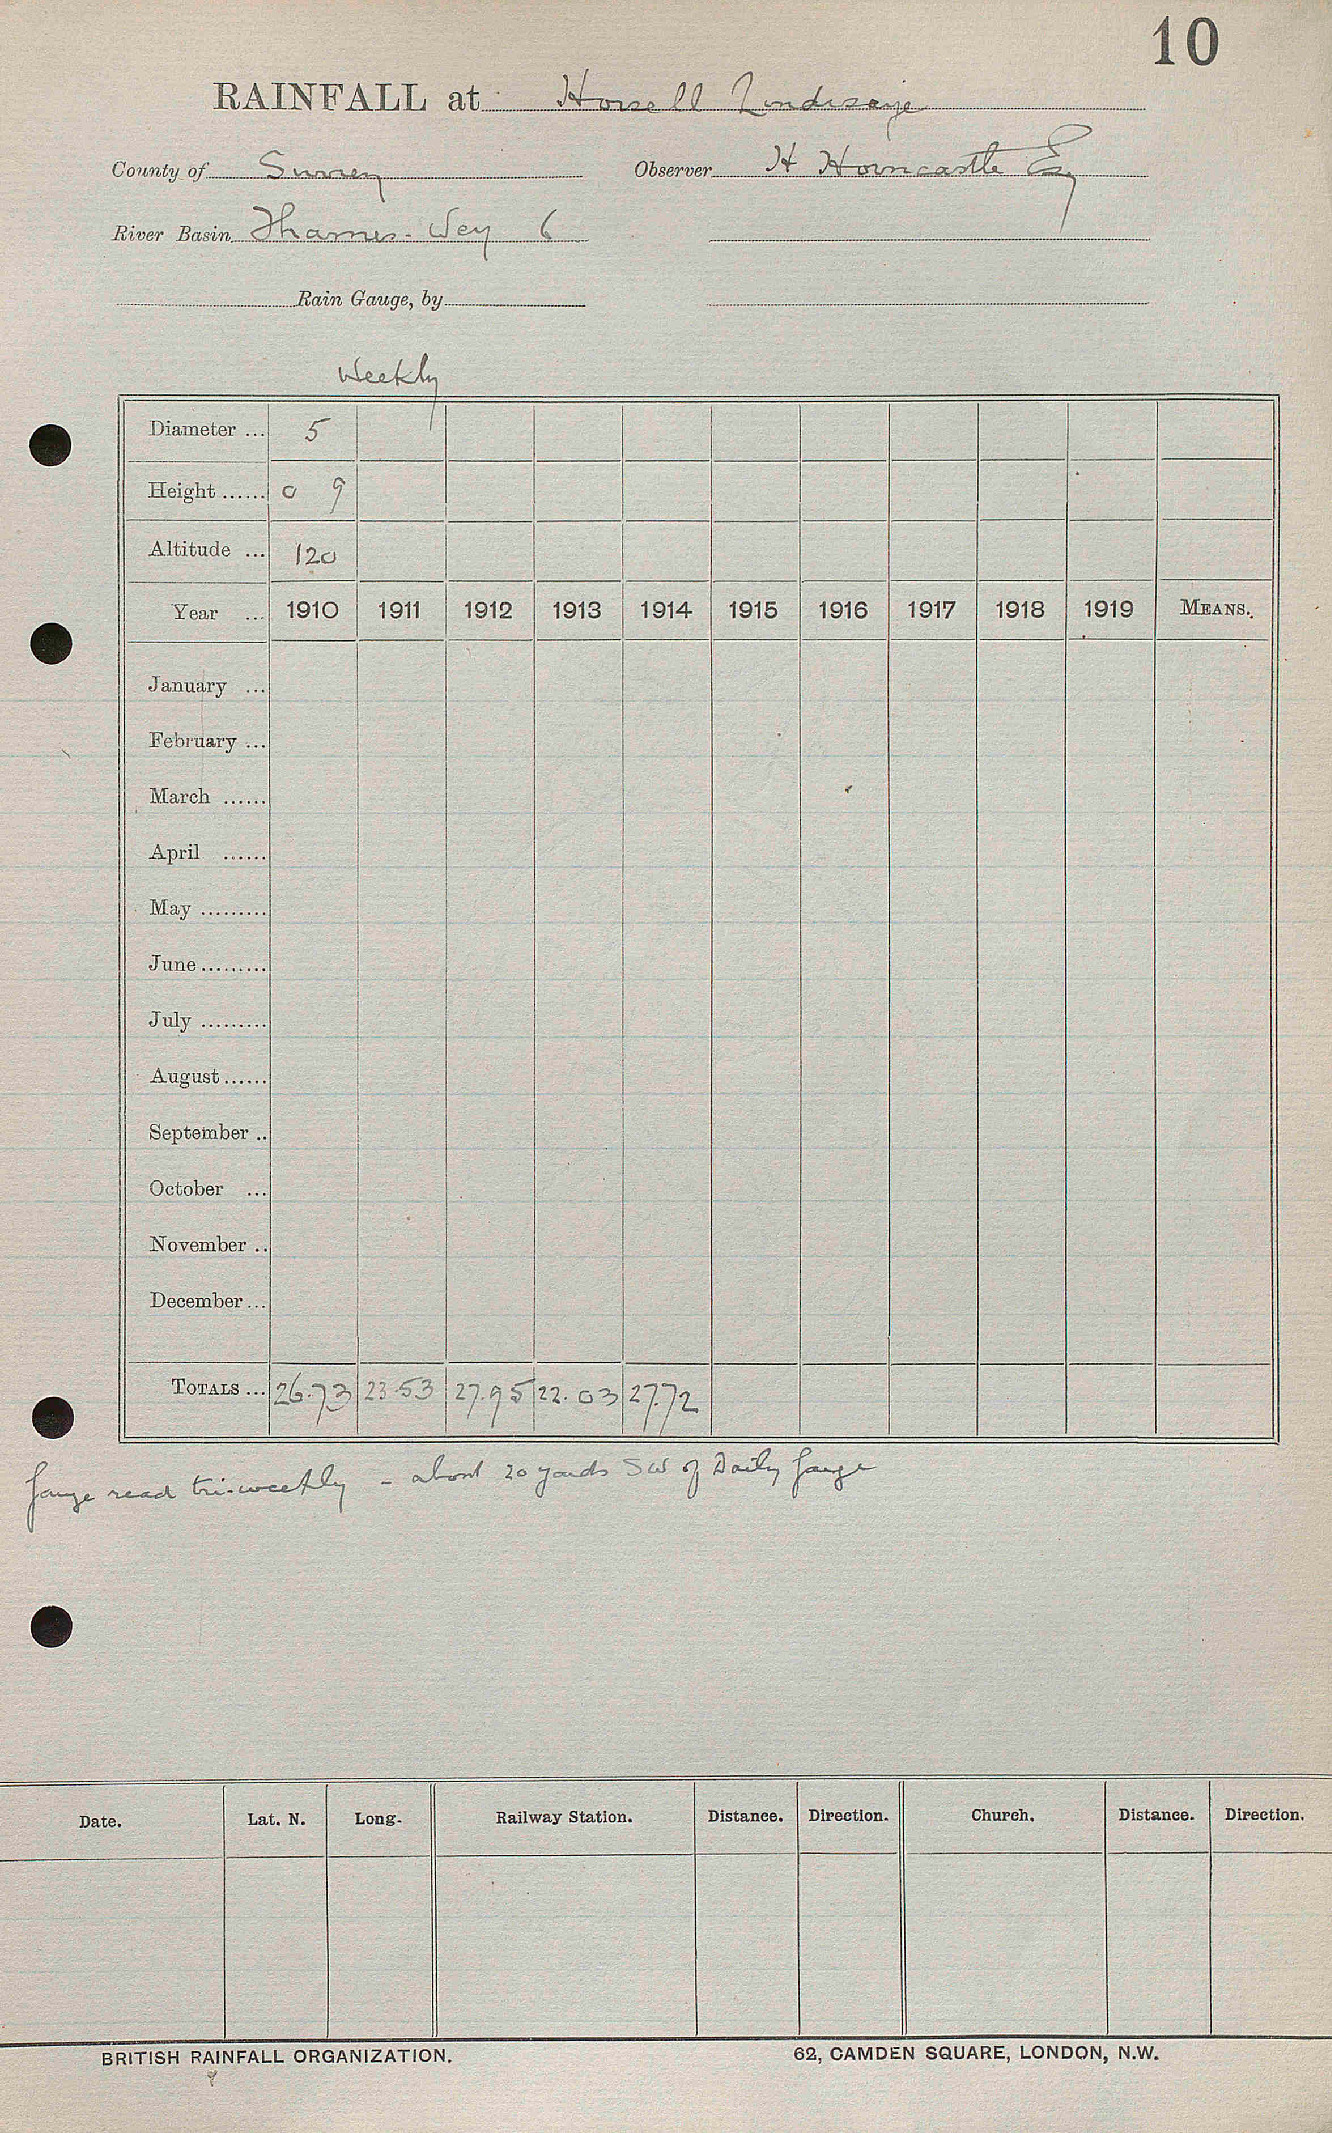 10
RAINFALL at Horsell Lindisaye
County of Surrey Observer H Horncastle Esq
River Basin Thames - Wey 6
Rain Gauge, by
Weekly
Diameter ... 5
Height ...... 0 9
Altitude ... 120
Year ... 1910 1911 1912 1913 1914 1915 1916 1917 1918 1919 MEANS.
January ...
February ...
March ......
April ......
May .........
June .........
July .........
August ......
September ..
October ...
November ..
December ...
TOTALS ... 26.73 23.53 27.95 22.03 27.72
Gauge read tri-weekly - about 20 yards SW of Daily gauge
Date. Lat. N. Long. Railway Station. Distance. Direction. Church. Distance. Direction.
BRITISH RAINFALL ORGANIZATION. 62, CAMDEN SQUARE, LONDON, N.W.